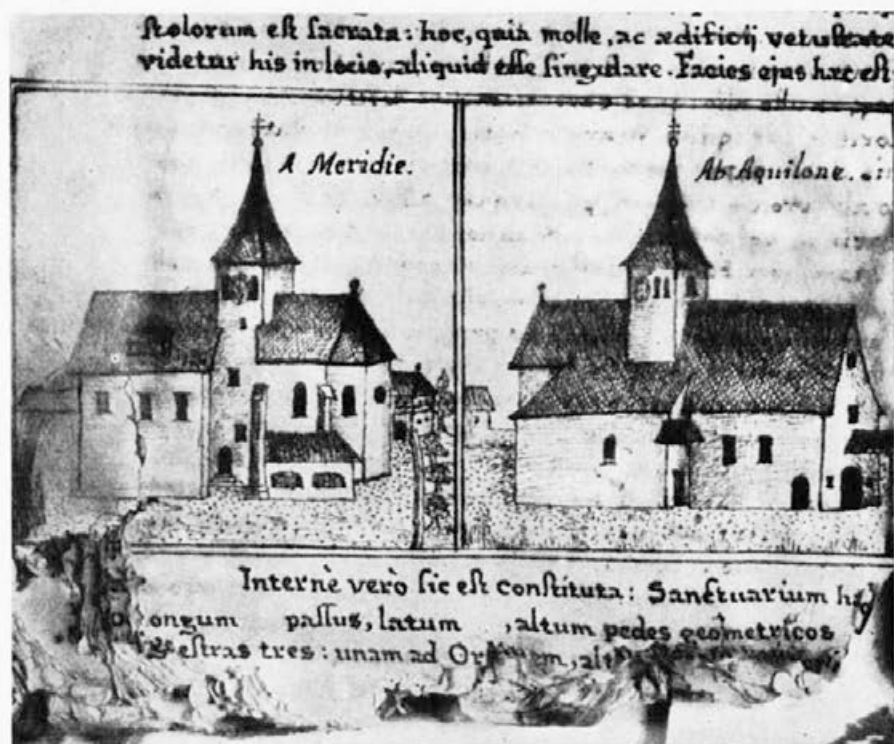 stolorum est sacrata: hoc, quia molle, ac ædificij vetustate
videtur his in locis, aliquid esse singulare. Facies ejus hæc est
A Meridie.
Ab Aquilone.
Internè verò sic est constituta: Sanctuarium h
ongum passus, latum , altum pedes geometricos
estras tres: unam ad Or m, alt